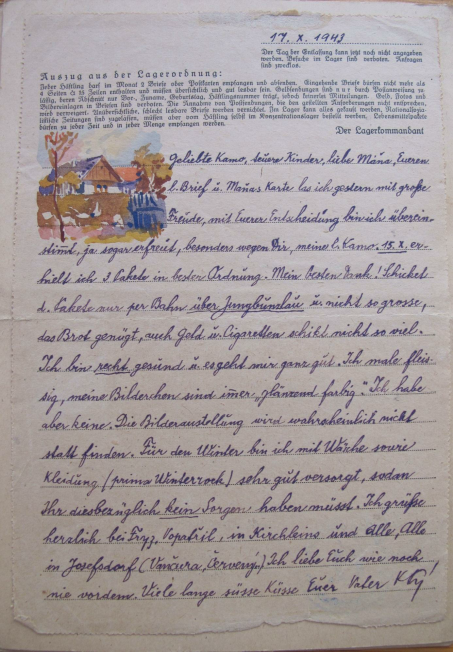 17. X. 1943
Der Tag der Entlassung kann jetzt noch nicht angegeben
werden. Besuche im Lager sind verboten. Anfragen
sind zwecklos.
Auszug aus der Lagerordnung:
Jeder Häftling darf im Monat 2 Briefe oder Postkarten empfangen und absenden. Eingehende Briefe dürfen nicht mehr als
4 Seiten à 15 Zeilen enthalten und müssen übersichtlich und gut lesbar sein. Geldsendungen sind nur durch Postanweisung zu-
lässig, deren Abschnitt nur Vor-, Zuname, Geburtstag, Häftlingsnummer trägt, jedoch keinerlei Mitteilungen. Geld, Fotos und
Bildereinlagen in Briefen sind verboten. Die Annahme von Postsendungen, die den gestellten Anforderungen nicht entsprechen,
wird verweigert. Unübersichtliche, schlecht lesbare Briefe werden vernichtet. Im Lager kann alles gekauft werden. Nationalsozia-
listische Zeitungen sind zugelassen, müssen aber vom Häftling selbst im Konzentrationslager bestellt werden. Lebensmittelpakete
dürfen zu jeder Zeit und in jeder Menge empfangen werden.
Der Lagerkommandant
Geliebte Kamo, teuere Kinder, liebe Máňa, Eueren
l. Brief u. Máňas Karte las ich gestern mit große
Freude, mit Euerer Entscheidung bin ich überein-
stimmt, ja sogar erfreut, besonders wegen Dir, meine l. Kamo. 15. X. er-
hielt ich 3 Pakete in bester Ordnung. Mein besten Dank! Schicket
d. Pakete nur per Bahn über Jungbunslau u. nicht so grosse,
das Brot genügt, auch Geld u. Cigaretten schikt nicht so viel.
Ich bin recht gesund u. es geht mir ganz gut. Ich male fleis-
sig, meine Bilderchen sind immer „glänzend farbig". Ich habe
aber keine. Die Bilderaustellung wird wahrscheinlich nicht
statt finden. Für den Winter bin ich mit Wäsche sowie
Kleidung (prima Winterrock) sehr gut versorgt, sodan
Ihr diesbezüglich kein Sorgen haben müsst. Ich grüsse
herzlich bei Fryz, Vopatřil, in Kirchleins und Alle, Alle
in Josefsdorf (Vančura, Červený.) Ich liebe Euch wie noch
nie vordem. Viele lange süsse Küsse Euer Vater